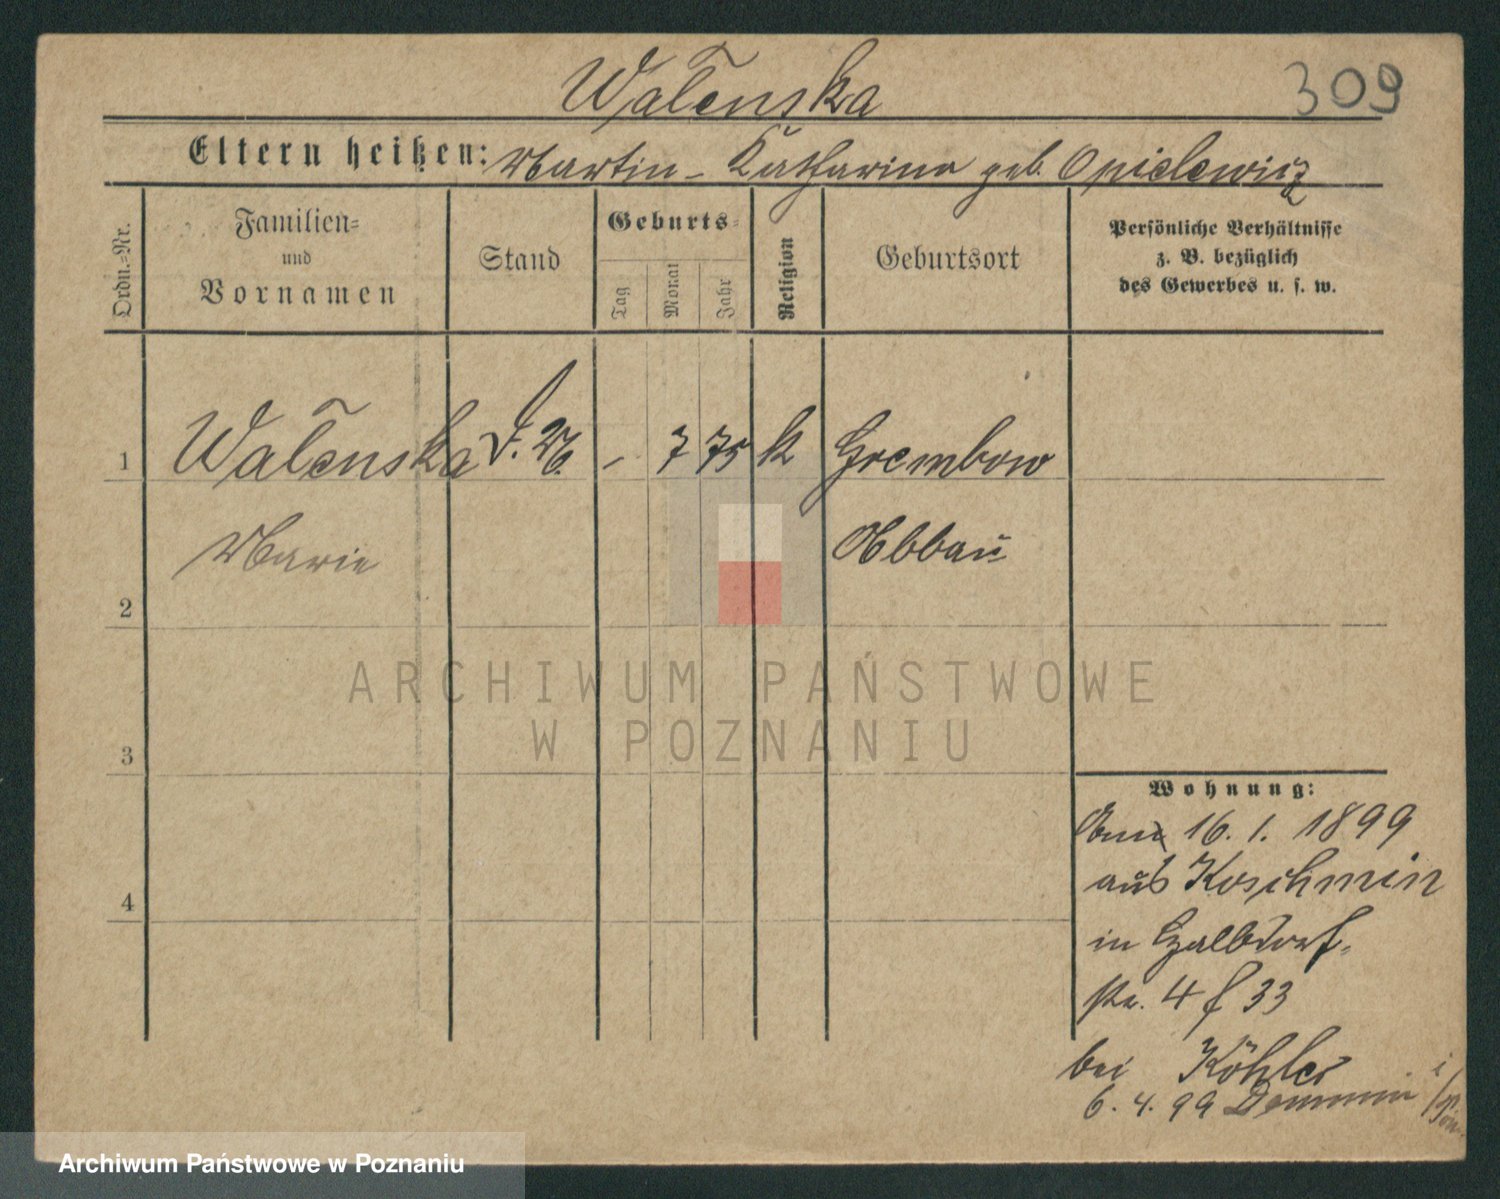 Walenska
309
Eltern heißen: Martin - Katharina geb. Opielewicz
Ordn.-Nr.
Familien-
und
Vornamen
Stand
Geburts-
Tag
Monat
Jahr
Religion
Geburtsort
Persönliche Verhältnisse
z. B. bezüglich
des Gewerbes u. s. w.
1
Walenska
- 7 75 k Grembow
Marie
Abbau
2
3
4
Wohnung:
16. 1. 1899
aus Koschmin
in
str. 4 f 33
bei Köhler
6. 4. 99 Demmin i/Pom.
ARCHIWUM PAŃSTWOWE
W POZNANIU
Archiwum Państwowe w Poznaniu